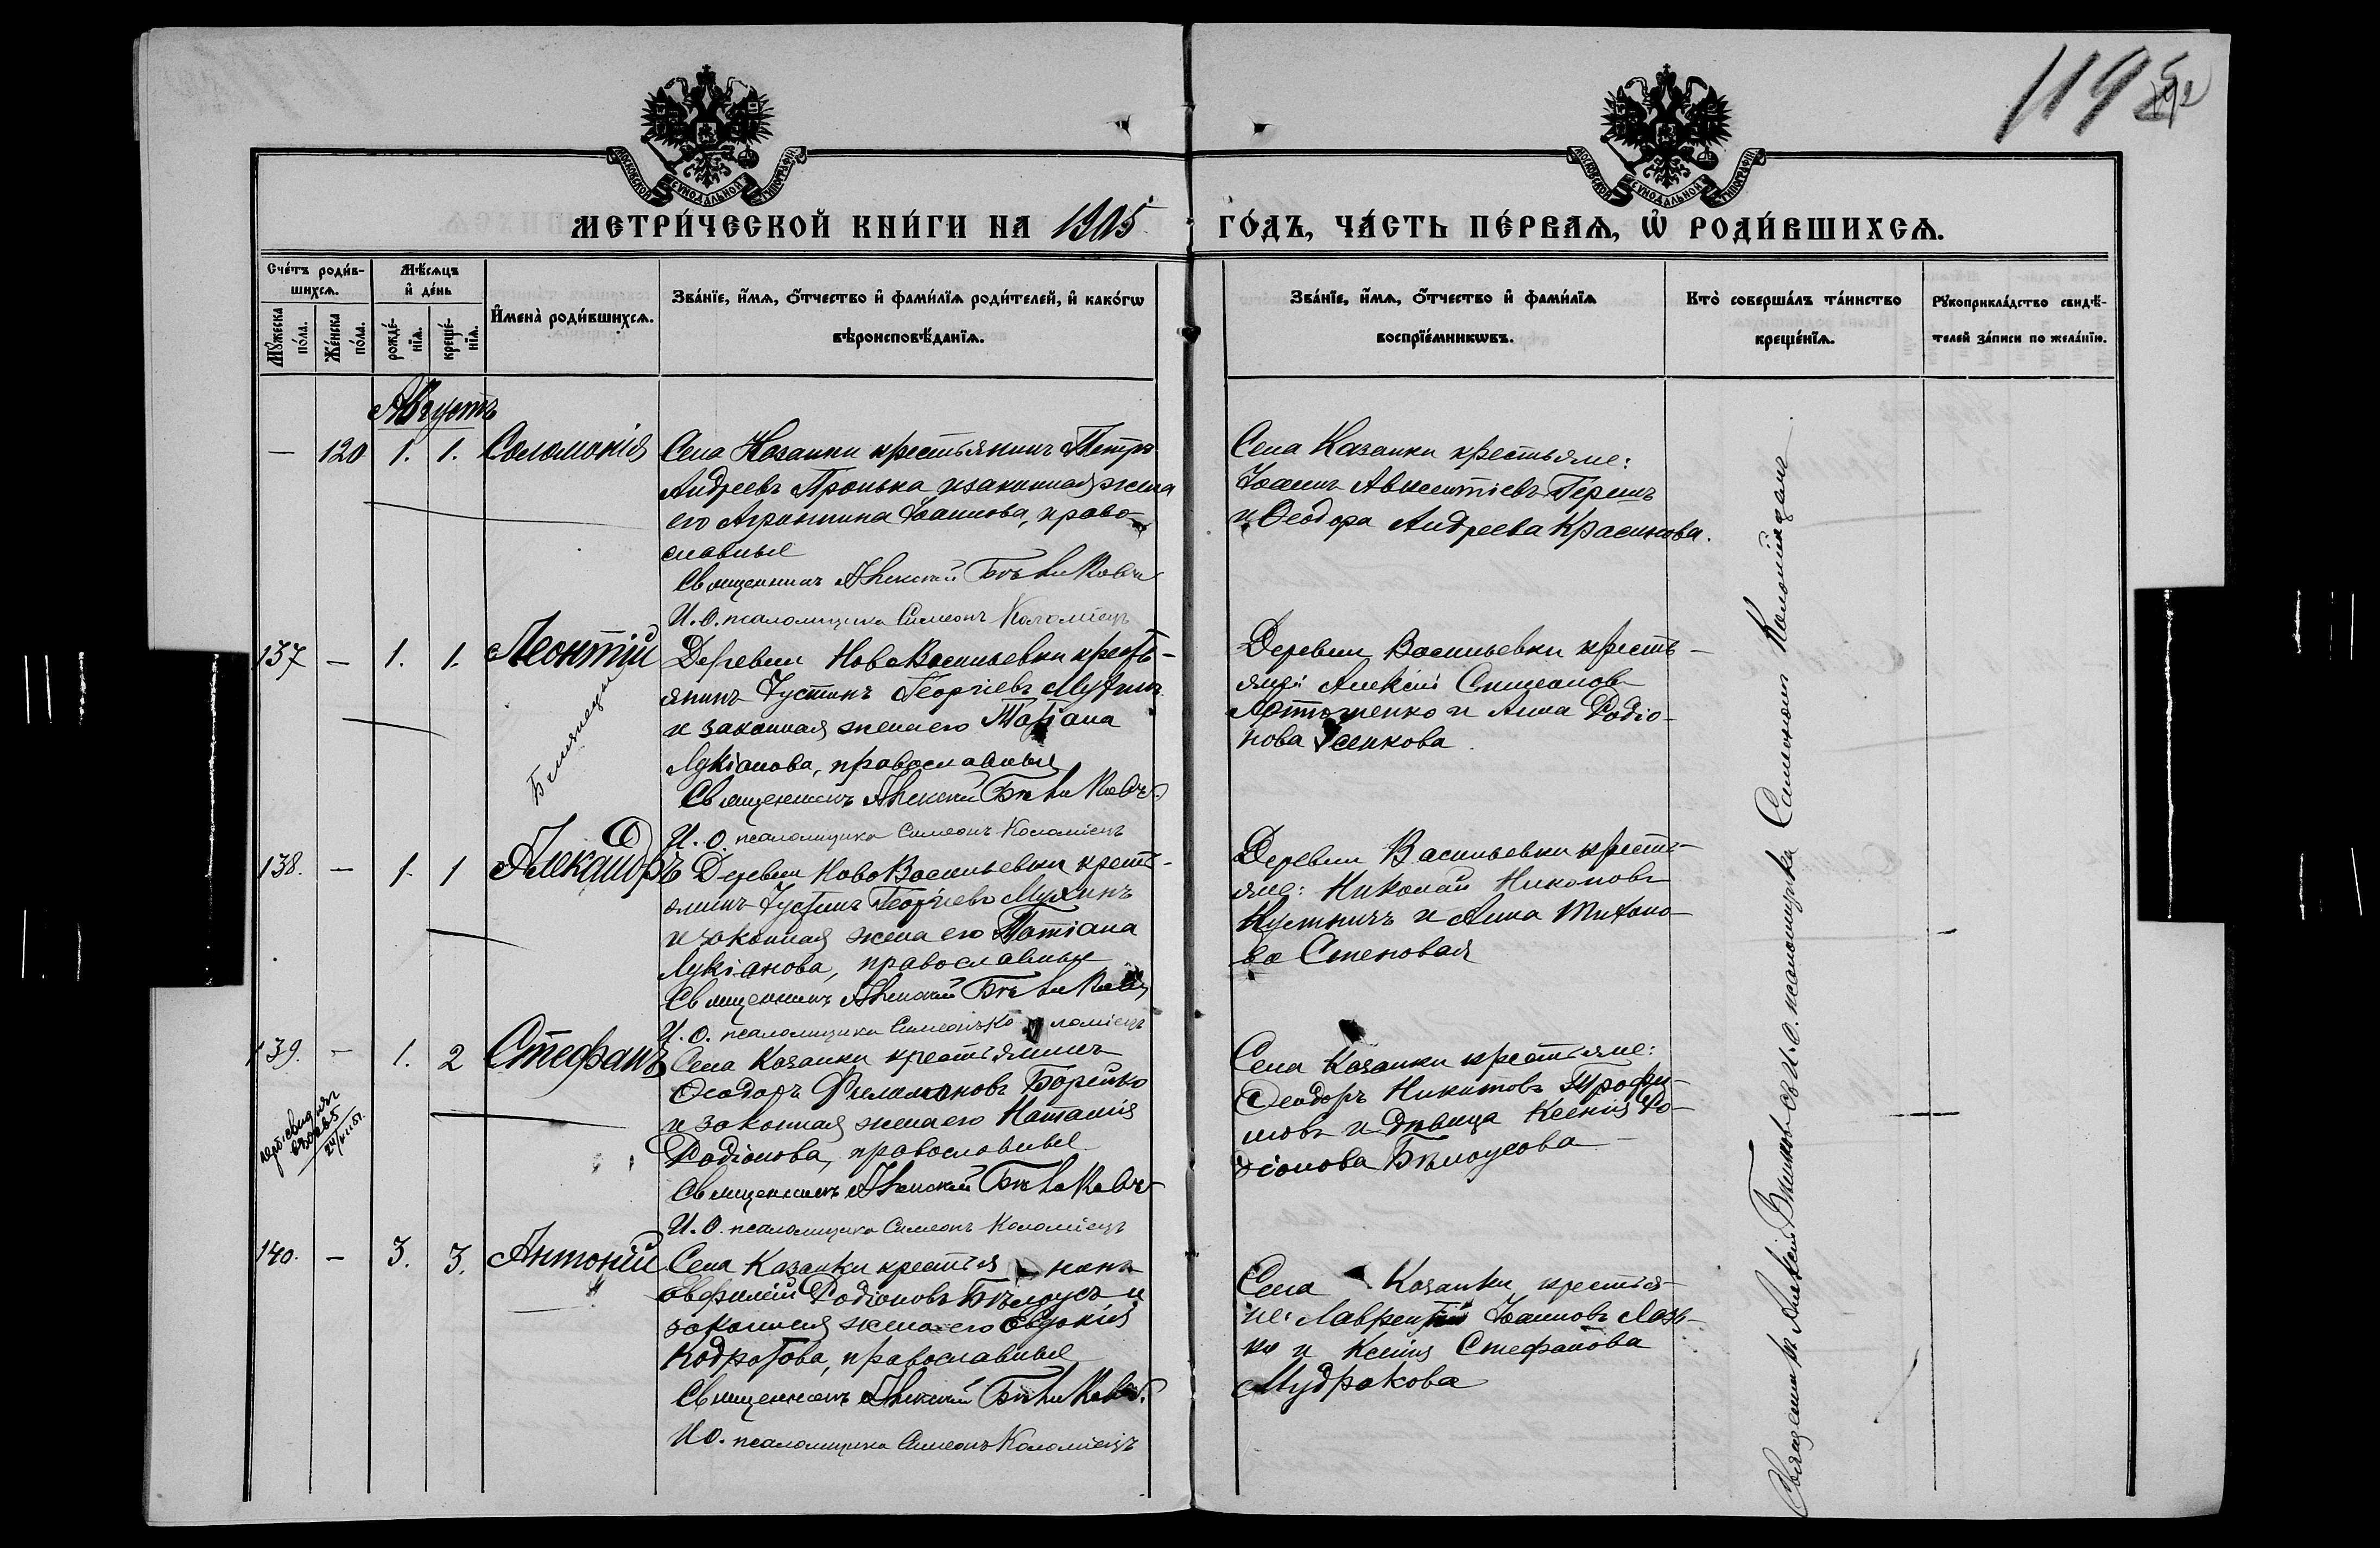 119
МОСКОВСКОЙ СѴНОДАЛЬНОЙ ТИПОГРАФІИ
МОСКОВСКОЙ СѴНОДАЛЬНОЙ ТИПОГРАФІИ
МЕТРИ́ЧЕСКОЙ КНИ́ГИ НА 1905
ГО́ДЪ, ЧА́СТЬ ПЕ́РВАѦ, Ѡ҆ РОДИ́ВШИХСѦ.
Сче́тъ роди́в-
шихсѧ.
Мꙋ́жеска по́ла.
Же́нска по́ла.
Мѣ́сѧцъ
и҆ де́нь
рожде́-
нїѧ.
креще́-
нїѧ.
И҆мена̀ роди́вшихсѧ.
Зва́нїе, и҆́мѧ, ѻ҆́тчество и҆ фами́лїѧ роди́телей, и҆ како́гѡ
вѣроисповѣ́данїѧ.
Зва́нїе, и҆́мѧ, ѻ҆́тчество и҆ фами́лїѧ
воспрїе́мникѡвъ.
Кто̀ соверша́лъ та́инство
креще́нїѧ.
Рꙋкоприкла́дство свидѣ́-
телей за́писи по жела́нїю.
Августъ
— 120 1. 1. Соломонія
Села Казанки крестьянинъ Петръ
Андреевъ Пронька и законная жена
его Агрипина Іоаннова, право-
славные
Священникъ Алексій Бѣликовъ
И. О. псаломщика Симеонъ Коломіецъ
Села Казанки крестьяне:
Іоаннъ Авксентіевъ
и Ѳеодора Андреева Красикова.
137 — 1. 1. Леонтій
Близнецы
Деревни НовоВасильевки кресть-
янинъ Іустинъ Георгіевъ Мухинъ
и законная жена его Татіана
Лукіанова, православные
Священникъ Алексій Бѣликовъ
И. О. псаломщика Симеонъ Коломіецъ
Деревни Васильевки кресть-
яне: Алексій Симеоновъ
и Анна Родіо-
нова Усенкова.
138. — 1. 1 Александръ
Деревни НовоВасильевки кресть-
янинъ Іустинъ Георгіевъ Мухинъ
и законная жена его Татіана
Лукіанова, православные
Священникъ Алексій Бѣликовъ
И. О. псаломщика Симеонъ Коломіецъ
Деревни Васильевки кресть-
яне: Николай Никоновъ
и Анна Тихоно-
ва Степовая
139. — 1. 2 Стефанъ
24/VII 51.
Села Казанки крестьянинъ
Ѳеодоръ Филимоновъ Борейко
и законная жена его Наталія
Родіонова, православные
Священникъ Алексій Бѣликовъ
И. О. псаломщика Симеонъ Коломіецъ
Села Казанки крестьяне:
Ѳеодоръ Никитовъ Трофи-
мовъ и дѣвица Ксенія Ро-
діонова Бѣлоусова
140. — 3. 3. Антоній
Села Казанки крестьянинъ
Евфимій Родіоновъ Бѣлоусъ и
законная жена его Евдокія
Кодратова, православные
Священникъ Алексій Бѣликовъ.
И. О. псаломщика Симеонъ Коломіецъ
Села Казанки крестья-
не: Лаврентій Іоанновъ Лазь-
ко и Ксенія Стефанова
Мудракова
Священникъ Алексій Бѣликовъ съ И. О. псаломщика Симеономъ Коломійцемъ.